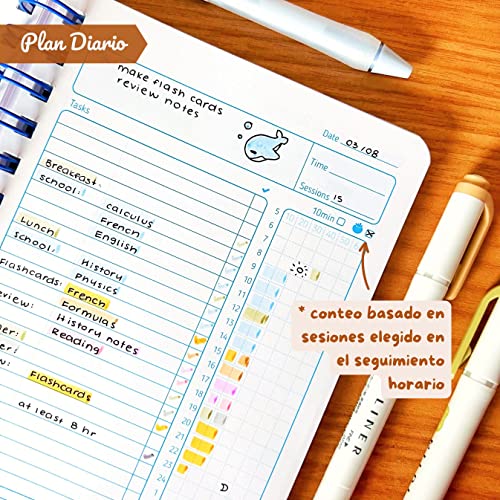 Plan Diario
make flash cards
review notes
Date 03/08
Time
Sessions 15
Tasks
10min
5 10 20 30 40 50
6
7
8
9
10
11
12
13
14
15
16
17
18
19
20
21
22
23
24
Breakfast:
School:
calculus
French
English
Lunch:
School:
History
Physics
Flashcards: French
Formulas
History notes
Reading
Flashcards
at least 8 hr
D
* conteo basado en
sesiones elegido en
el seguimiento
horario
LINER